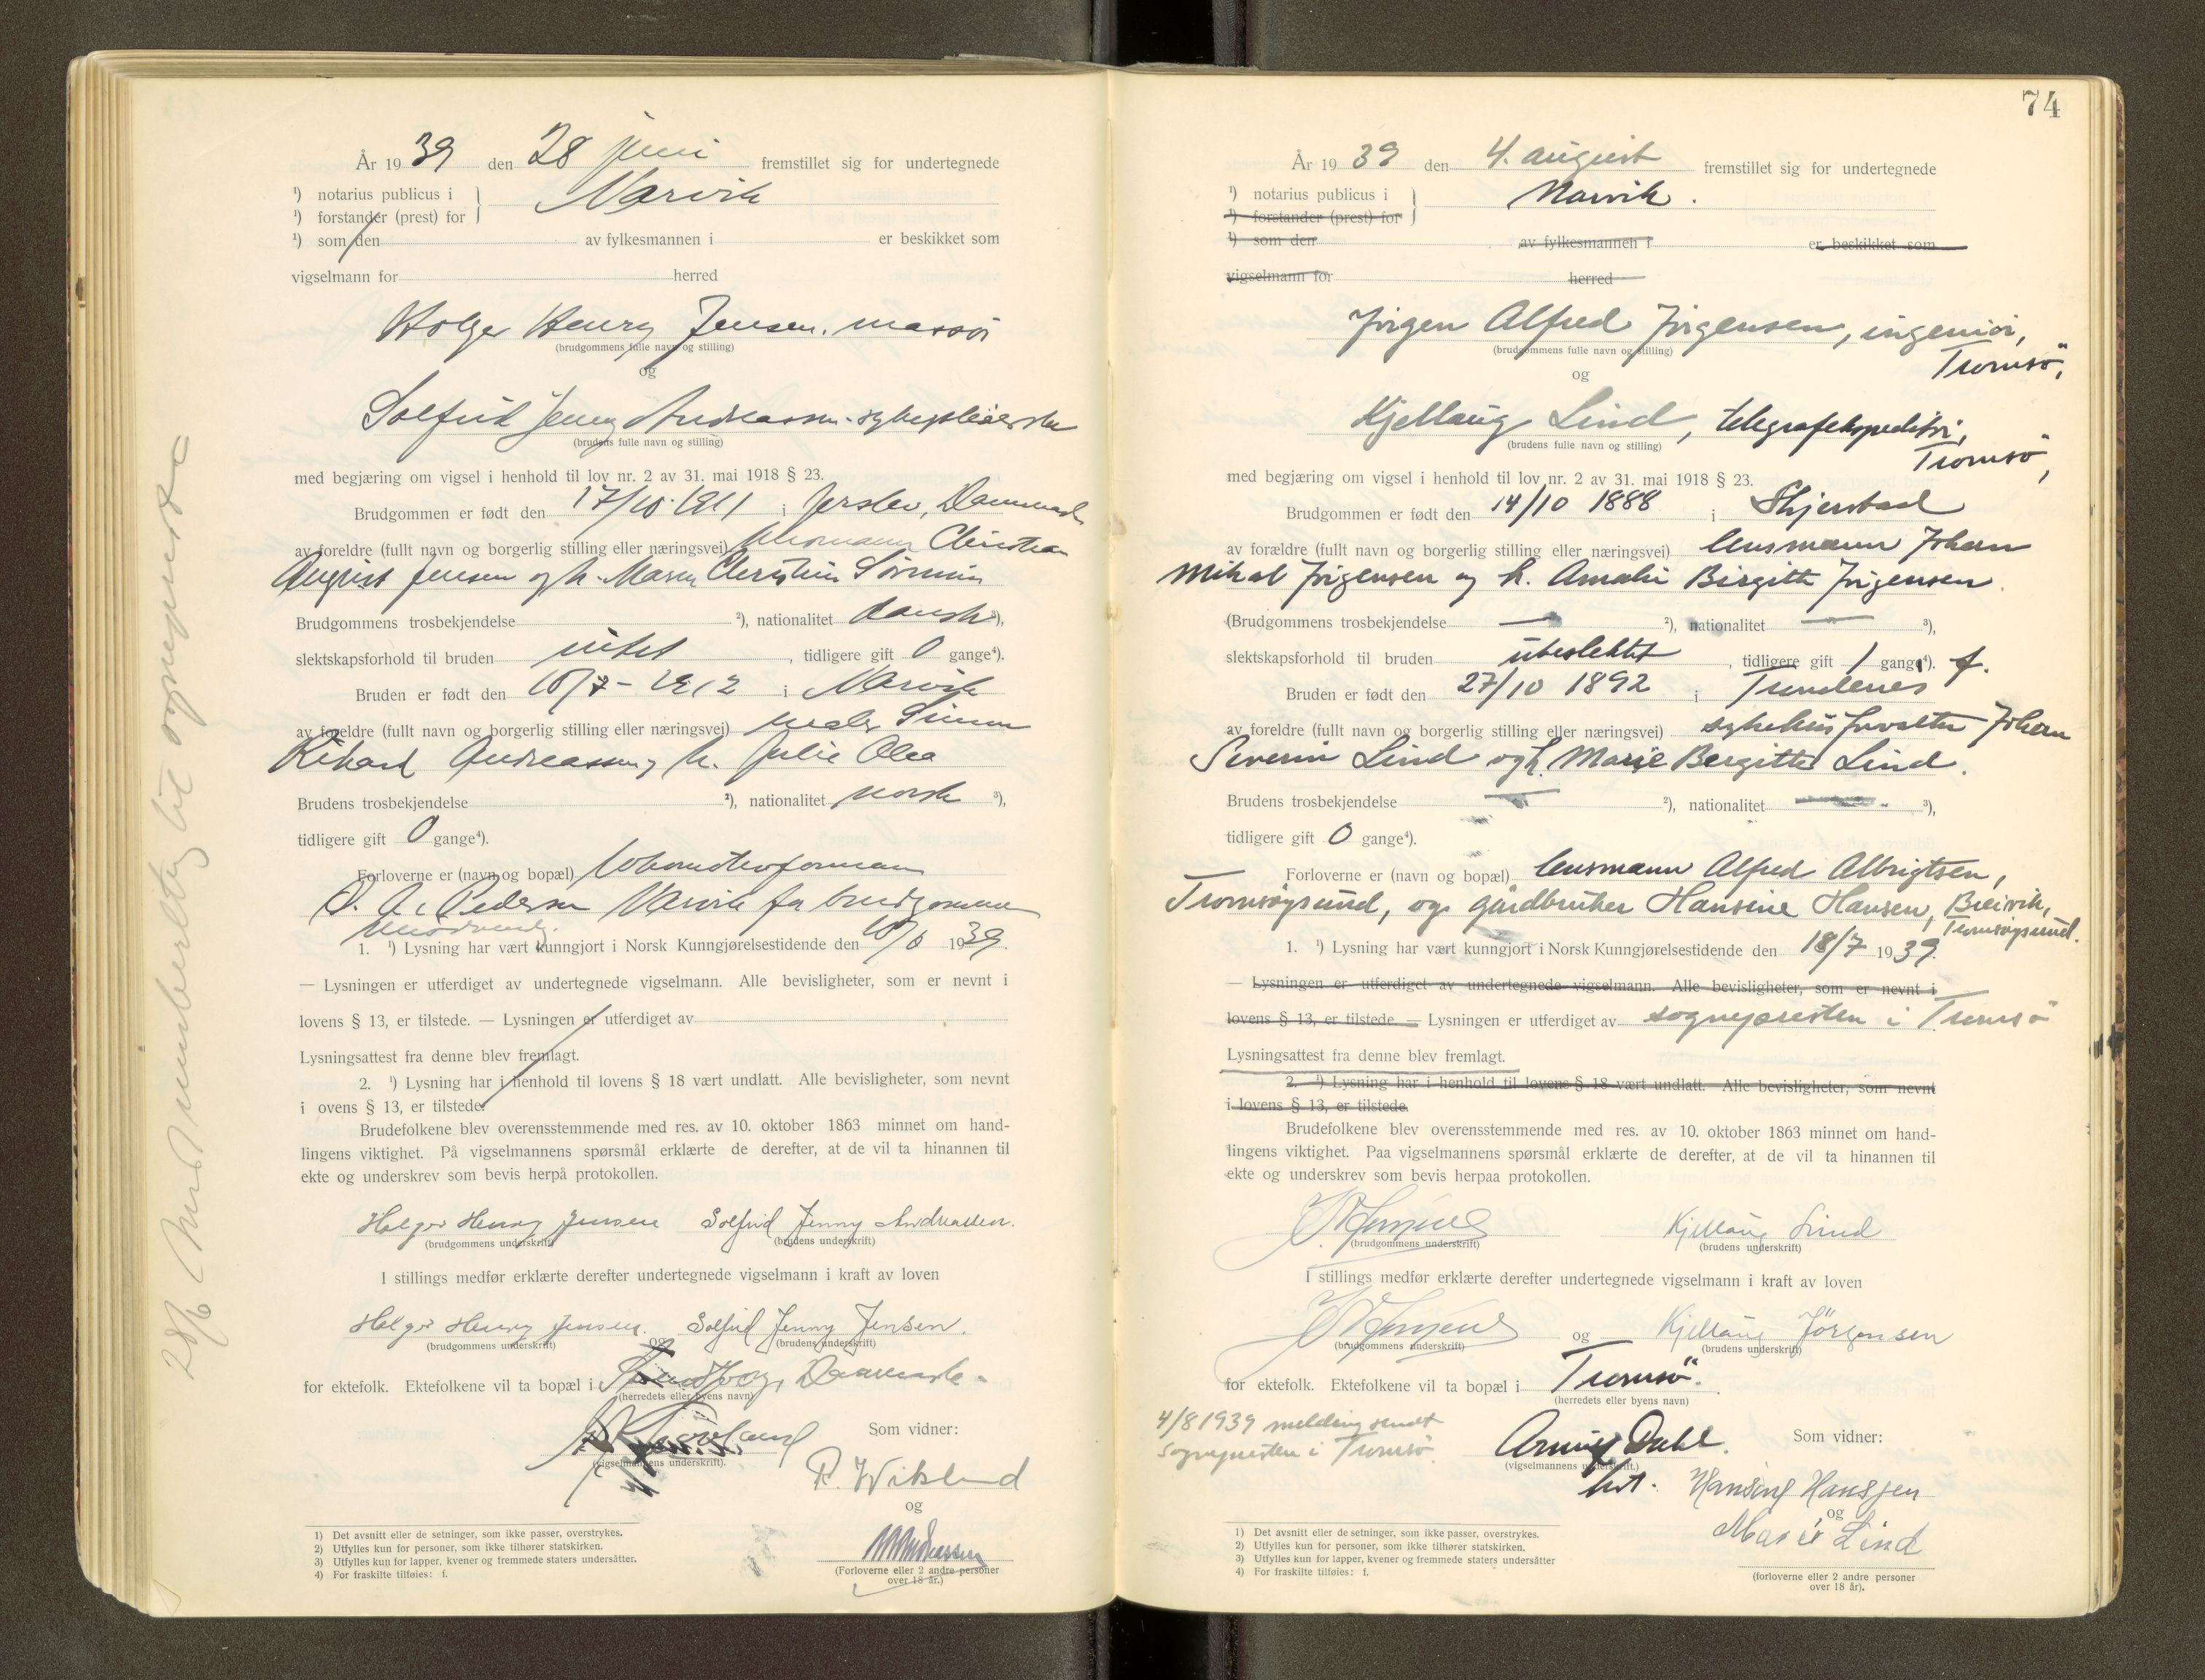 År 1939 den 28 juni fremstillet sig for undertegnede
¹) notarius publicus i } Narvik
¹) forstander (prest) for
¹) som den av fylkesmannen i er beskikket som
vigselmann for herred
Holger Henry Jensen. massør
(brudgommens fulle navn og stilling)
og
Solfrid Jenny Andreassen. sykepleierske
(brudens fulle navn og stilling)
med begjæring om vigsel i henhold til lov nr. 2 av 31. mai 1918 § 23.
Brudgommen er født den 17/10-1911 i Jerslev, Danmark
av foreldre (fullt navn og borgerlig stilling eller næringsvei) Christian
August Jensen og h. Maren Sørensen
Brudgommens trosbekjendelse ²), nationalitet dansk ³),
slektskapsforhold til bruden intet , tidligere gift 0 gange⁴).
Bruden er født den 10/7-1912 i Narvik
av foreldre (fullt navn og borgerlig stilling eller næringsvei) maler Simon
Rikard Andreassen og h. Julie Olea
Brudens trosbekjendelse ²), nationalitet norsk ³),
tidligere gift 0 gange⁴).
Forloverne er (navn og bopæl) lokomotivformann
O. A. Pedersen Narvik for brudgommen
1. ¹) Lysning har vært kunngjort i Norsk Kunngjørelsestidende den 10/6 1939.
— Lysningen er utferdiget av undertegnede vigselmann. Alle bevisligheter, som er nevnt i
lovens § 13, er tilstede. — Lysningen er utferdiget av
Lysningsattest fra denne blev fremlagt.
2. ¹) Lysning har i henhold til lovens § 18 vært undlatt. Alle bevisligheter, som nevnt
i ovens § 13, er tilstede.
Brudefolkene blev overensstemmende med res. av 10. oktober 1863 minnet om hand-
lingens viktighet. På vigselmannens spørsmål erklærte de derefter, at de vil ta hinannen til
ekte og underskrev som bevis herpå protokollen.
Holger Henry Jensen Solfrid Jenny Andreassen.
(brudgommens underskrift) (brudens underskrift)
I stillings medfør erklærte derefter undertegnede vigselmann i kraft av loven
Holger Henry Jensen. og Solfrid Jenny Jensen.
(brudgommens underskrift) (brudens underskrift)
for ektefolk. Ektefolkene vil ta bopæl i Danmark.
(herredets eller byens navn)
Som vidner:
(vigselmannens underskrift).
R. Wiklund
og
(Forloverne eller 2 andre personer
over 18 år.)
1) Det avsnitt eller de setninger, som ikke passer, overstrykes.
2) Utfylles kun for personer, som ikke tilhører statskirken.
3) Utfylles kun for lapper, kvener og fremmede staters undersåtter.
4) For fraskilte tilføies: f.
28/6 til sogneprest
74
År 1939 den 4. august fremstillet sig for undertegnede
¹) notarius publicus i } Narvik.
¹) forstander (prest) for
¹) som den av fylkesmannen i er beskikket som
vigselmann for herred
Jørgen Alfred Jørgensen, ingeniør,
Tromsö,
(brudgommens fulle navn og stilling)
og
Kjellaug Lind, telegrafekspeditør,
Tromsö,
(brudens fulle navn og stilling)
med begjæring om vigsel i henhold til lov nr. 2 av 31. mai 1918 § 23.
Brudgommen er født den 14/10 1888 i Skjerstad
av forældre (fullt navn og borgerlig stilling eller næringsvei) lensmann Johan
Mikal Jørgensen og h. Amalie Birgitte Jørgensen.
(Brudgommens trosbekjendelse — ²), nationalitet — ³),
slektskapsforhold til bruden ubeslektet , tidligere gift 1 gang⁴). f.
Bruden er født den 27/10 1892 i Trondenes
av foreldre (fullt navn og borgerlig stilling eller næringsvei) sykehusforvalter Johan
Severin Lind og h. Marie Bergitte Lind.
Brudens trosbekjendelse — ²), nationalitet — ³),
tidligere gift 0 gange⁴).
Forloverne er (navn og bopæl) lensmann Alfred Albrigtsen,
Tromsøysund, og gårdbruker Hansine Hansen, Breivik,
Tromsøysund.
1. ¹) Lysning har vært kunngjort i Norsk Kunngjørelsestidende den 18/7 1939.
— Lysningen er utferdiget av undertegnede vigselmann. Alle bevisligheter, som er nevnt i
lovens § 13, er tilstede. — Lysningen er utferdiget av sognepresten i Tromsö
Lysningsattest fra denne blev fremlagt.
2. ¹) Lysning har i henhold til lovens § 18 vært undlatt. Alle bevisligheter, som nevnt
i lovens § 13, er tilstede.
Brudefolkene blev overensstemmende med res. av 10. oktober 1863 minnet om hand-
lingens viktighet. Paa vigselmannens spørsmål erklærte de derefter, at de vil ta hinannen til
ekte og underskrev som bevis herpaa protokollen.
Kjellaug Lind
(brudgommens underskrift) (brudens underskrift)
I stillings medfør erklærte derefter undertegnede vigselmann i kraft av loven
og Kjellaug Jörgensen
(brudgommens underskrift) (brudens underskrift)
for ektefolk. Ektefolkene vil ta bopæl i Tromsö.
(herredets eller byens navn)
4/8 1939 melding sendt
sognepresten i Tromsö.
Dahl. Som vidner:
(vigselmannens underskrift.)
Hansine Hanssen
og
Marie Lind
(forloverne eller 2 andre personer
over 18 år).
1) Det avsnitt eller de setninger, som ikke passer, overstrykes.
2) Utfylles kun for personer, som ikke tilhører statskirken.
3) Utfylles kun for lapper, kvener og fremmede staters undersåtter
4) For fraskilte tilføies: f.